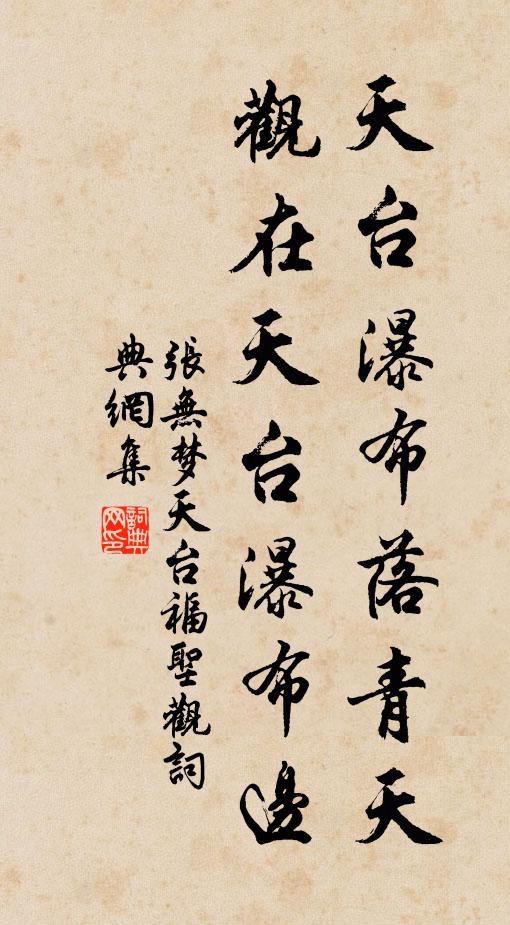 天台瀑布落青天
觀在天台瀑布邊
張無梦天台福聖觀詞
典網集
詞典
网印